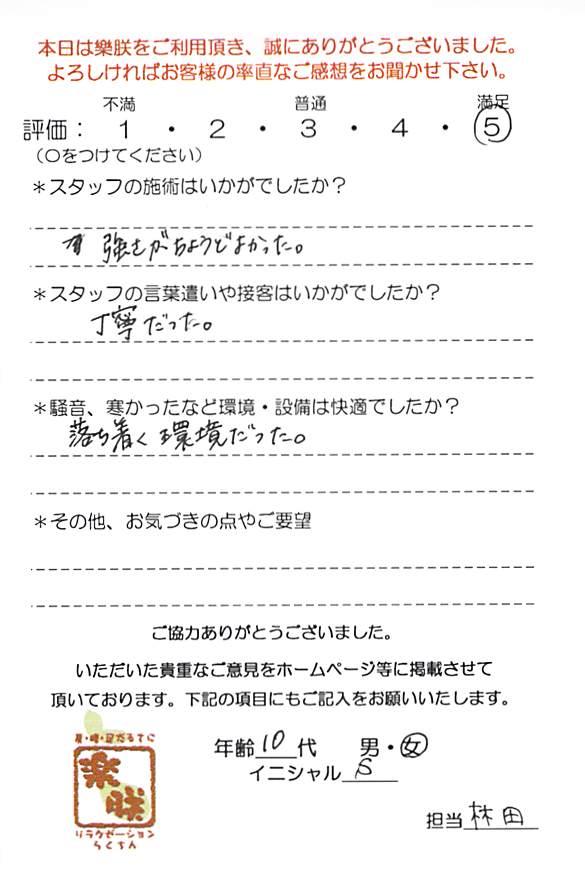 本日は樂朕をご利用頂き、誠にありがとうございました。
よろしければお客様の率直なご感想をお聞かせ下さい。
不満 普通 満足
評価： 1 ・ 2 ・ 3 ・ 4 ・ 5
（〇をつけてください）
＊スタッフの施術はいかがでしたか？
強さがちょうどよかった。
＊スタッフの言葉遣いや接客はいかがでしたか？
丁寧だった。
＊騒音、寒かったなど環境・設備は快適でしたか？
落ち着く環境だった。
＊その他、お気づきの点やご要望
ご協力ありがとうございました。
いただいた貴重なご意見をホームページ等に掲載させて
頂いております。下記の項目にもご記入をお願いいたします。
年齢 10 代 男・女
イニシャル S
担当 林田
樂朕
リラクゼーション
らくちん